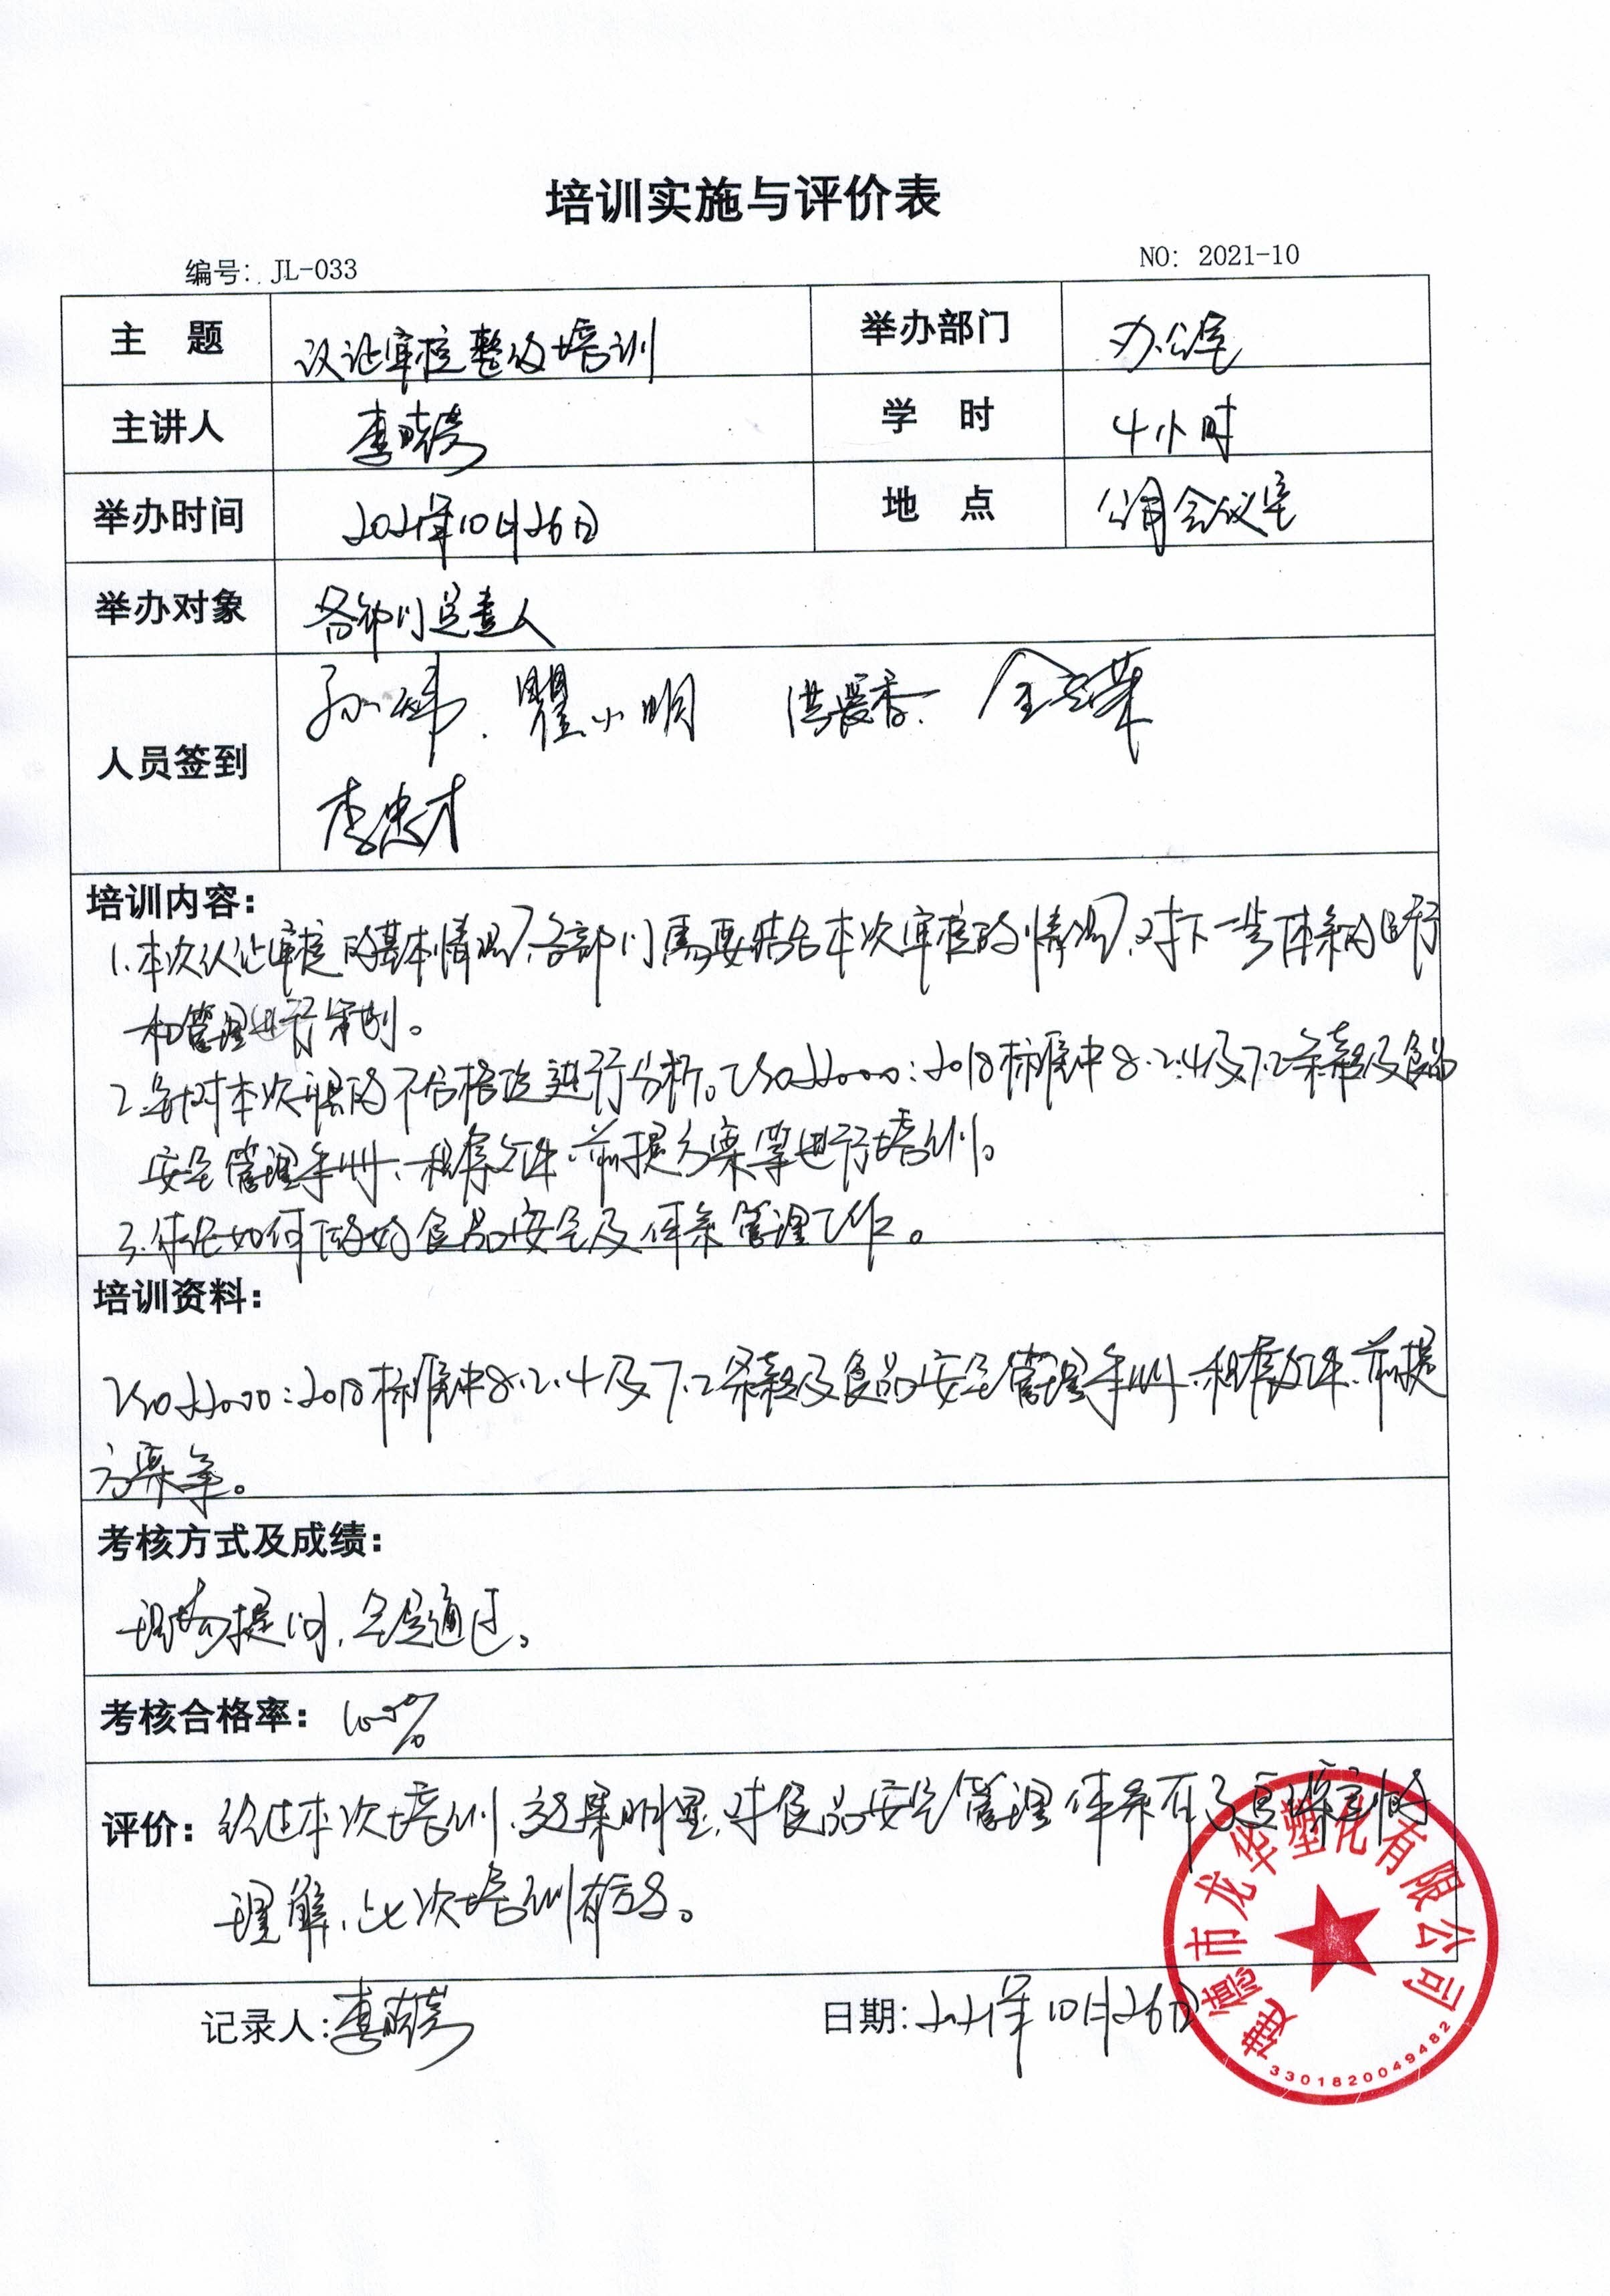 培训实施与评价表
编号: JL-033
NO: 2021-10
主 题 认证审核整改培训 举办部门 办公室
主讲人 李晓 学 时 4小时
举办时间 2021年10月26日 地 点 公司会议室
举办对象 各部门负责人
人员签到 孙 瞿小明 洪爱香 金 荣
李忠才
培训内容:
1.本次认证审核的基本情况,各部门需要结合本次审核的情况,对下一步体系的运行
和管理进行策划。
2.针对本次 的不合格项进行分析。ISO22000:2018标准中8.2.4及7.2条款及食品
安全管理手册、程序文件、前提方案等进行培训。
3.讨论如何 好食品安全及体系管理工作。
培训资料:
ISO22000:2018标准中8.2.4及7.2条款及食品安全管理手册、程序文件、前提
方案等。
考核方式及成绩:
现场提问,全员通过。
考核合格率: 100%
评价: 经过本次培训,效果明显,对食品安全管理体系有了更深刻的
理解,此次培训有效。
记录人: 李晓 日期: 2021年10月26日
建德市龙华塑化有限公司
3301820049482